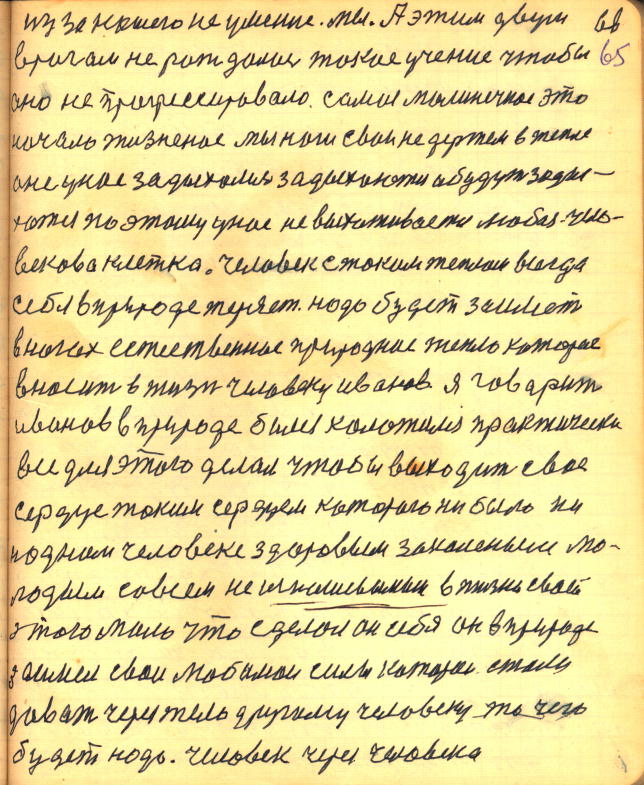 из за нашего не умение. мы. А этим двум 66
врагам не рождалос такое учение чтобы 65
оно не прогрессировало. самое маличечное это
начало жизненое мы ноги свои не держем в тепле
оне у нас задыхалися задыхаются и будут зады-
хатся поэтому у нас не выхаживается любая чело-
векова клетка. человек с таким теплом всегда
себя в природе теряет. надо будет заимет
в ногах естественное природное тепло которое
вносит в жизн человеку иванов. я говорит
иванов в природе билея колотился практически
все для этого делал чтобы выходит свое
сердце таким сердцем которого ни было ни
на одном человеке здоровым закаленым мо-
лодым совсем не в жизни своей
этого мало что сделал он себя он в природе
заимел свои силы которые стали
доват через тело другому человеку то чего
будет надо. человек через человека